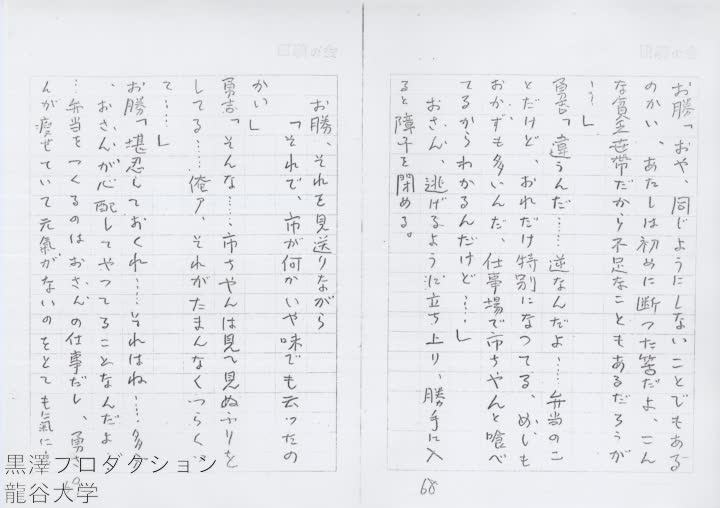 お勝「おや、同じようにしないことでもある
のかい、あたしは初めに断つた筈だよ、こん
な貧乏世帯だから不足なこともあるだろうが
…」
勇吉「違うんだ……逆なんだよ……弁当のこ
とだけど、おれだけ特別になつてる、めしも
おかずも多いんだ、仕事場で市ちやんと喰べ
てるからわかるんだけど……」
おさん、逃げるように立ち上り、勝手に入
ると障子を閉める。
68
お勝、それを見送りながら
「それで、市が何かいや味でも云つたの
かい」
勇吉「そんな……、市ちやんは見て見ぬふりを
してる……俺ァ、それがたまんなくつらく
て……」
お勝「堪忍しておくれ……それはね……多分
、おさんが心配してやつてることなんだよ
…弁当をつくるのはおさんの仕事だし、勇さ
んが痩せていて元氣がないのをとても氣に
黒澤プロダクション
龍谷大学